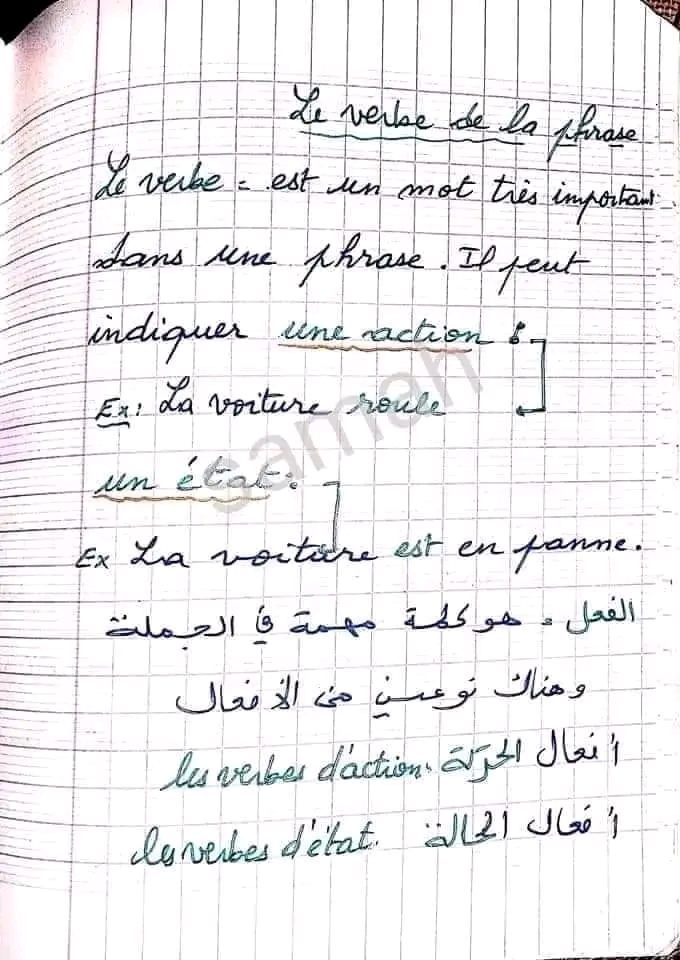 Le verbe de la phrase
Le verbe = est un mot très important
dans une phrase. Il peut
indiquer une action :
Ex: La voiture roule
un état :
Ex La voiture est en panne.
الفعل = هو كلمة مهمة في الجملة
وهناك نوعين من الأفعال
أفعال الحركة les verbes d'action.
أفعال الحالة les verbes d'état.
samah